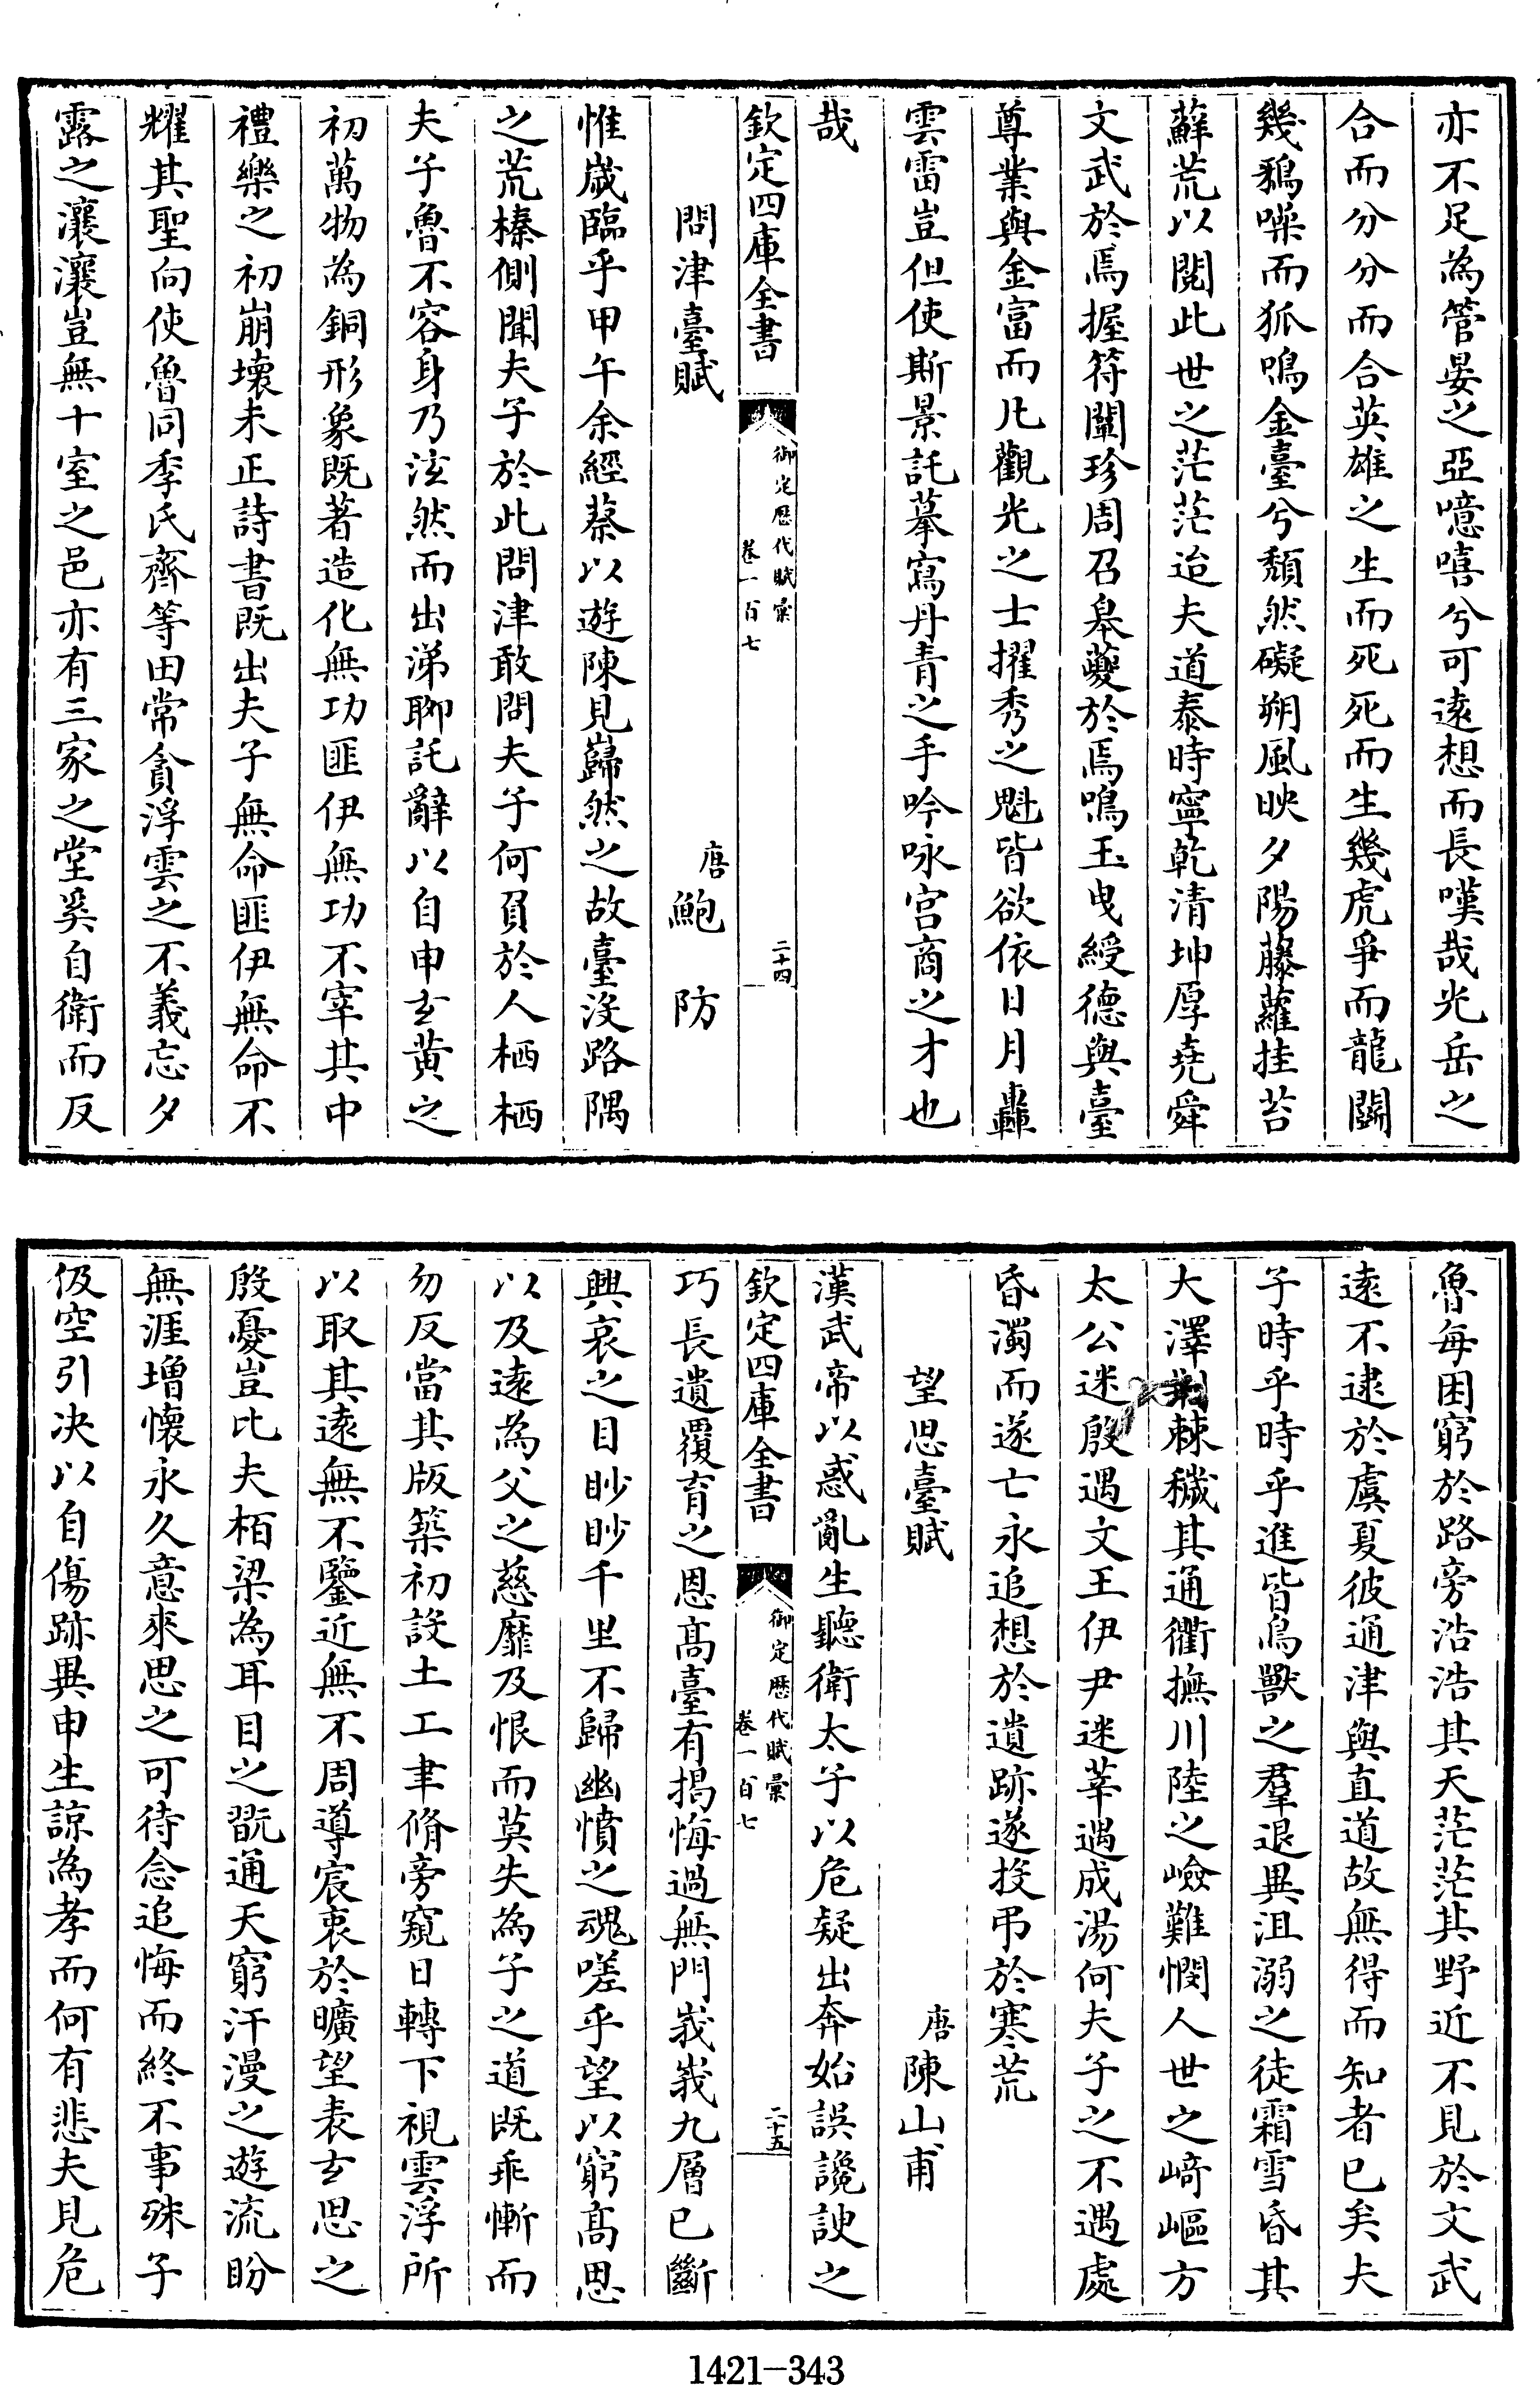 亦不足為管晏之亞噫嘻兮可遠想而長嘆哉光岳之
合而分分而合英雄之生而死死而生幾虎爭而龍鬬
幾鵶噪而狐鳴金臺兮頽然礙朔風映夕陽藤蘿挂苔
蘚荒以閱此世之茫茫迨夫道泰時寧乾清坤厚堯舜
文武於焉握符闡珍周召皋夔於焉鳴玉曳綬德與臺
尊業與金富而凡觀光之士擢秀之魁皆欲依日月轟
雲雷豈但使斯景託摹寫丹青之手吟咏宫商之才也
哉
欽定四庫全書
御定歷代賦彙
卷一百七
二十四
問津臺賦
唐鮑防
惟嵗臨乎甲午余經蔡以遊陳見巋然之故臺沒路隅
之荒榛側聞夫子於此問津敢問夫子何負於人栖栖
夫子魯不容身乃泫然而出涕聊託辭以自申玄黄之
初萬物為銅形象既著造化無功匪伊無功不宰其中
禮樂之初崩壞未正詩書既出夫子無命匪伊無命不
耀其聖向使魯同季氏齊等田常貪浮雲之不義忘夕
露之瀼瀼豈無十室之邑亦有三家之堂奚自衛而反
魯每困窮於路旁浩浩其天茫茫其野近不見於文武
遠不逮於虞夏彼通津與直道故無得而知者已矣夫
子時乎時乎進皆鳥獸之羣退異沮溺之徒霜雪昏其
大澤荆棘穢其通衢撫川陸之嶮難憫人世之崎嶇方
太公迷殷遇文王伊尹迷莘遇成湯何夫子之不遇處
昏濁而遂亡永追想於遺跡遂投弔於寒荒
望思臺賦
唐陳山甫
漢武帝以惑亂生聽衛太子以危疑出奔始誤讒諛之
欽定四庫全書
御定歷代賦彙
卷一百七
二十五
巧長遺覆育之恩髙臺有掲悔過無門峩峩九層已斷
興哀之目眇眇千里不歸幽憤之魂嗟乎望以窮髙思
以及遠為父之慈靡及恨而莫失為子之道既乖慚而
勿反當其版築初設土工聿脩旁窺日轉下視雲浮所
以取其遠無不鑒近無不周導宸衷於曠望表玄思之
殷憂豈比夫栢梁為耳目之翫通天窮汗漫之遊流盼
無涯增懷永久意來思之可待念追悔而終不事殊子
伋空引决以自傷跡異申生諒為孝而何有悲夫見危
1421-343